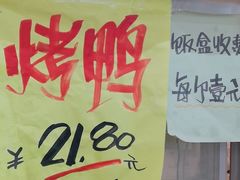 烤鸭
¥21.80元
饭盒收费
每个壹元